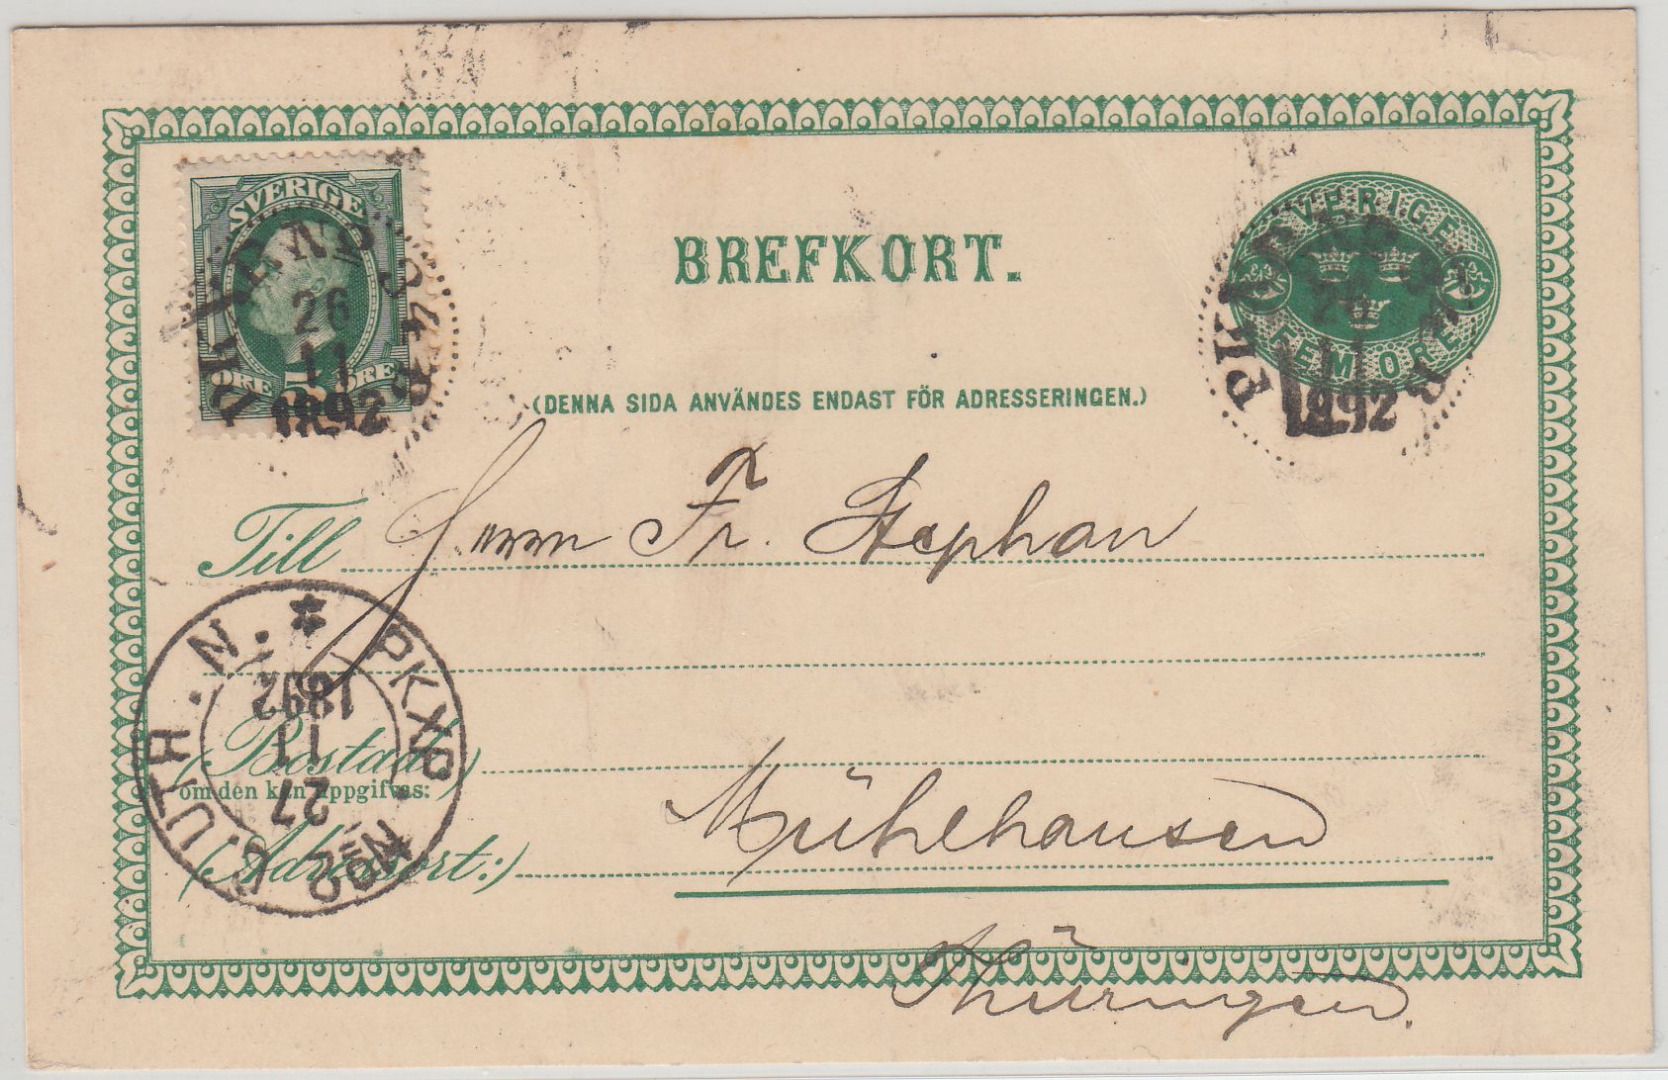 SVERIGE
ÖRE 5 ÖRE
PKXP. Nº 34 B
26
11
1892
BREFKORT.
SVERIGE
FEM ÖRE
PKXP
26
11
1892
(DENNA SIDA ANVÄNDES ENDAST FÖR ADRESSERINGEN.)
Till Herrn Fr. Stephan
(Bostad,
om den kan uppgifvas:)
Mühlhausen
(Adressort:)
Thüringen.
PKXP. Nº 2. UTR. N.
27
11
1892